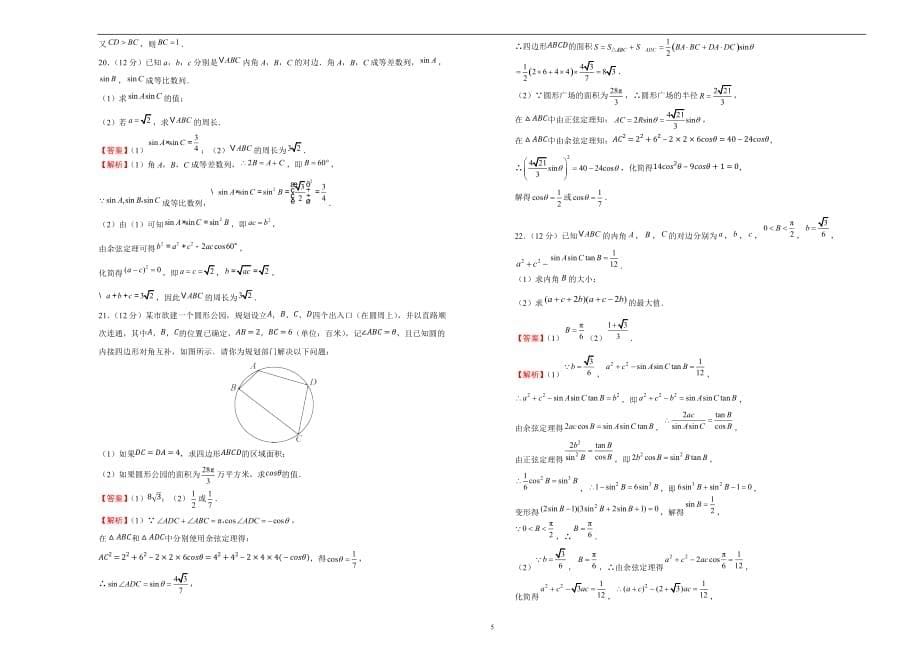 又 CD > BC，则 BC = 1．
20．（12 分）已知 a，b，c 分别是 VABC 内角 A，B，C 的对边．角 A，B，C 成等差数列，sin A，
sin B，sin C 成等比数列．
（1）求 sin A sin C 的值；
（2）若 a = √2，求 VABC 的周长．
【答案】（1）sin A*sin C = 3/4；（2）VABC 的周长为 3√2．
【解析】（1）角 A，B，C 成等差数列，∵2B = A + C，即 B = 60°，
∵ sin A, sin B, sin C 成等比数列，\ sin A*sin C = sin² B = 3/4
（2）由（1）可知 sin A*sin C = sin² B，即 ac = b²，
由余弦定理可得 b² = a² + c² - 2ac cos 60°，
化简得 (a - c)² = 0，即 a = c = √2，b = √ac = √2，
\ a + b + c = 3√2，因此 VABC 的周长为 3√2．
21．（12 分）某市欲建一个圆形公园，规划设立 A，B，C，D 四个出入口（在圆周上），并以直路顺
次连通，其中 A，B，C 的位置已确定，AB = 2，BC = 6（单位：百米），记∠ABC = θ，且已知圆的
内接四边形对角互补，如图所示．请你为规划部门解决以下问题：
A
B
D
C
（1）如果 DC = DA = 4，求四边形 ABCD 的区域面积；
（2）如果圆形公园的面积为 28π/3 万平方米，求 cosθ 的值．
【答案】（1）8√3；（2）1/2 或 1/7．
【解析】（1）∵ ∠ADC + ∠ABC = π，cos∠ADC = -cosθ，
在 △ABC 和 △ADC 中分别使用余弦定理得：
AC² = 2² + 6² - 2 × 2 × 6cosθ = 4² + 4² - 2 × 4 × 4(-cosθ)，得 cosθ = 1/7，
∴ sin∠ADC = sinθ = 4√3/7，
∴四边形 ABCD 的面积 S = S△ABC + S ADC = 1/2 (BA · BC + DA · DC) sinθ
= 1/2 (2 × 6 + 4 × 4) 4√3/7 = 8√3．
（2）∵圆形广场的面积为 28π/3，∴圆形广场的半径 R = 2√21/3，
在 △ABC 中由正弦定理知：AC = 2R sinθ = 4√21/3 sinθ，
在 △ABC 中由余弦定理知：AC² = 2² + 6² - 2 × 2 × 6cosθ = 40 - 24cosθ，
∴ (4√21/3 sinθ)² = 40 - 24cosθ，化简得 14cos²θ - 9cosθ + 1 = 0，
解得 cosθ = 1/2 或 cosθ = 1/7．
22．（12 分）已知 VABC 的内角 A，B，C 的对边分别为 a，b，c，0 < B < π/2，b = √3/6，
a² + c² - sin A sin C tan B = 1/12．
（1）求内角 B 的大小；
（2）求 (a + c + 2b)(a + c - 2b) 的最大值．
【答案】（1）B = π/6（2）1+√3/3．
【解析】（1）∵ b = √3/6，a² + c² - sin A sin C tan B = 1/12，
∴ a² + c² - sin A sin C tan B = b²，即 a² + c² - b² = sin A sin C tan B，
由余弦定理得 2ac cos B = sin A sin C tan B，∴ 2ac/sin A sin C = tan B/cos B，
由正弦定理得 2b²/sin² B = tan B/cos B，即 2b² cos B = sin² B tan B，
∴ 1/6 cos² B = sin³ B，∴ 1 - sin² B = 6sin³ B，即 6sin³ B + sin² B - 1 = 0，
变形得 (2sin B - 1)(3sin² B + 2sin B + 1) = 0，解得 sin B = 1/2，
∵ 0 < B < π/2，∴ B = π/6．
（2）∵ b = √3/6，B = π/6，∴由余弦定理得 a² + c² - 2ac cos π/6 = 1/12，
化简得 a² + c² - √3ac = 1/12，∴ (a + c)² - (2 + √3)ac = 1/12，
5